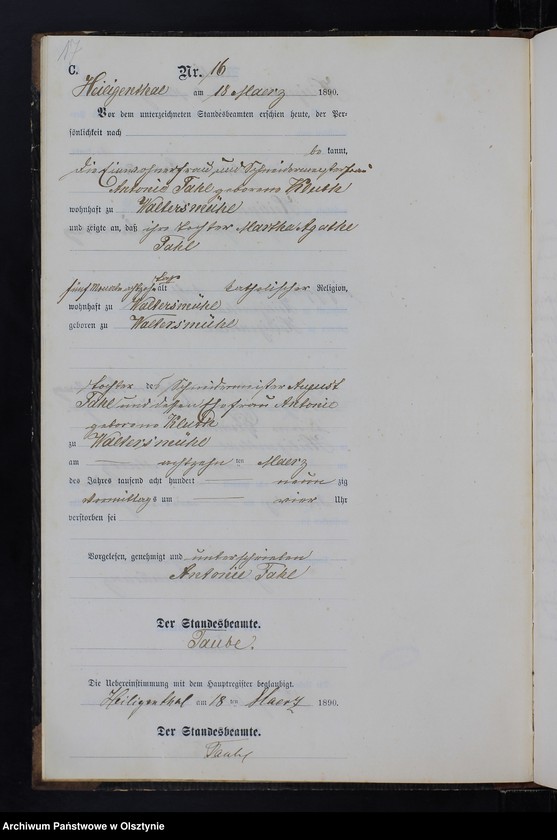 17
C.
Nr. 16
Heiligenthal am 18 Maerz 1890.
Vor dem unterzeichneten Standesbeamten erschien heute, der Per-
sönlichkeit nach
be kannt,
die Einwohnerfrau und Schneidermeisterfrau
Antonie Fahl geborene Kluth
wohnhaft zu Waltersmühl
und zeigte an, daß ihre Tochter Martha Agathe
Fahl
fünf Monate achtzehn Tage alt katholischer Religion,
wohnhaft zu Waltersmühl
geboren zu Waltersmühl
Tochter des Schneidermeister August
Fahl und dessen Ehefrau Antonie
geborene Kluth
zu Waltersmühl
am achtzehn ten Maerz
des Jahres tausend acht hundert neun zig
Vormittags um vier Uhr
verstorben sei
Vorgelesen, genehmigt und unterschrieben
Antonie Fahl
Der Standesbeamte.
Taube.
Die Uebereinstimmung mit dem Hauptregister beglaubigt.
Heiligenthal am 18 ten Maerz 1890.
Der Standesbeamte.
Taube
Archiwum Państwowe w Olsztynie